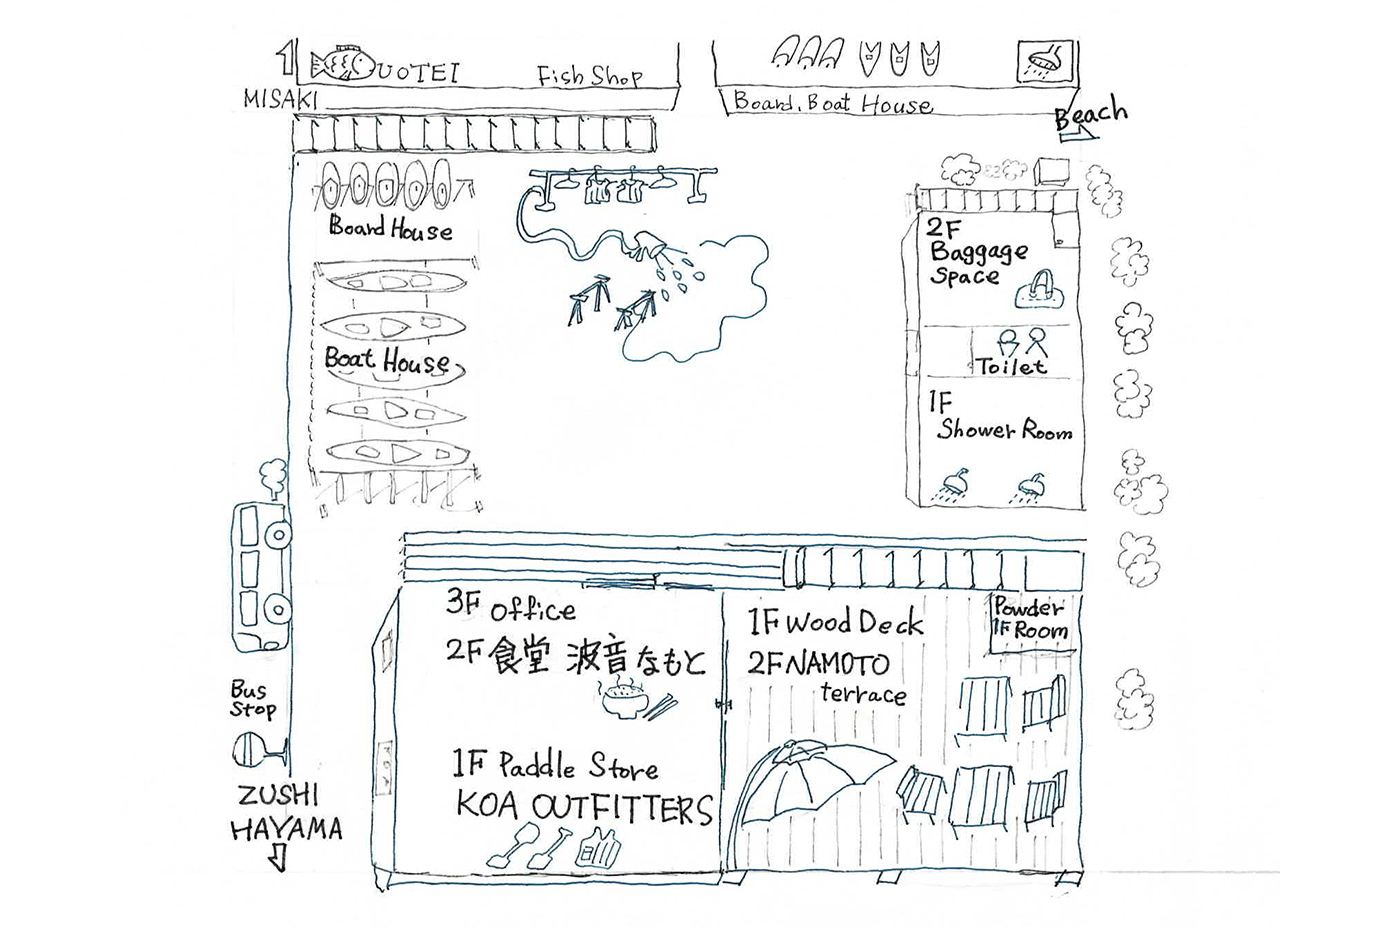 UOTEI
Fish Shop
MISAKI
Board, Boat House
Beach
Board House
Boat House
2F
Baggage
Space
Toilet
1F
Shower Room
Bus
Stop
ZUSHI
HAYAMA
3F office
2F 食堂 波音なもと
1F Paddle Store
KOA OUTFITTERS
1F Wood Deck
2F NAMOTO
terrace
Powder
1F Room